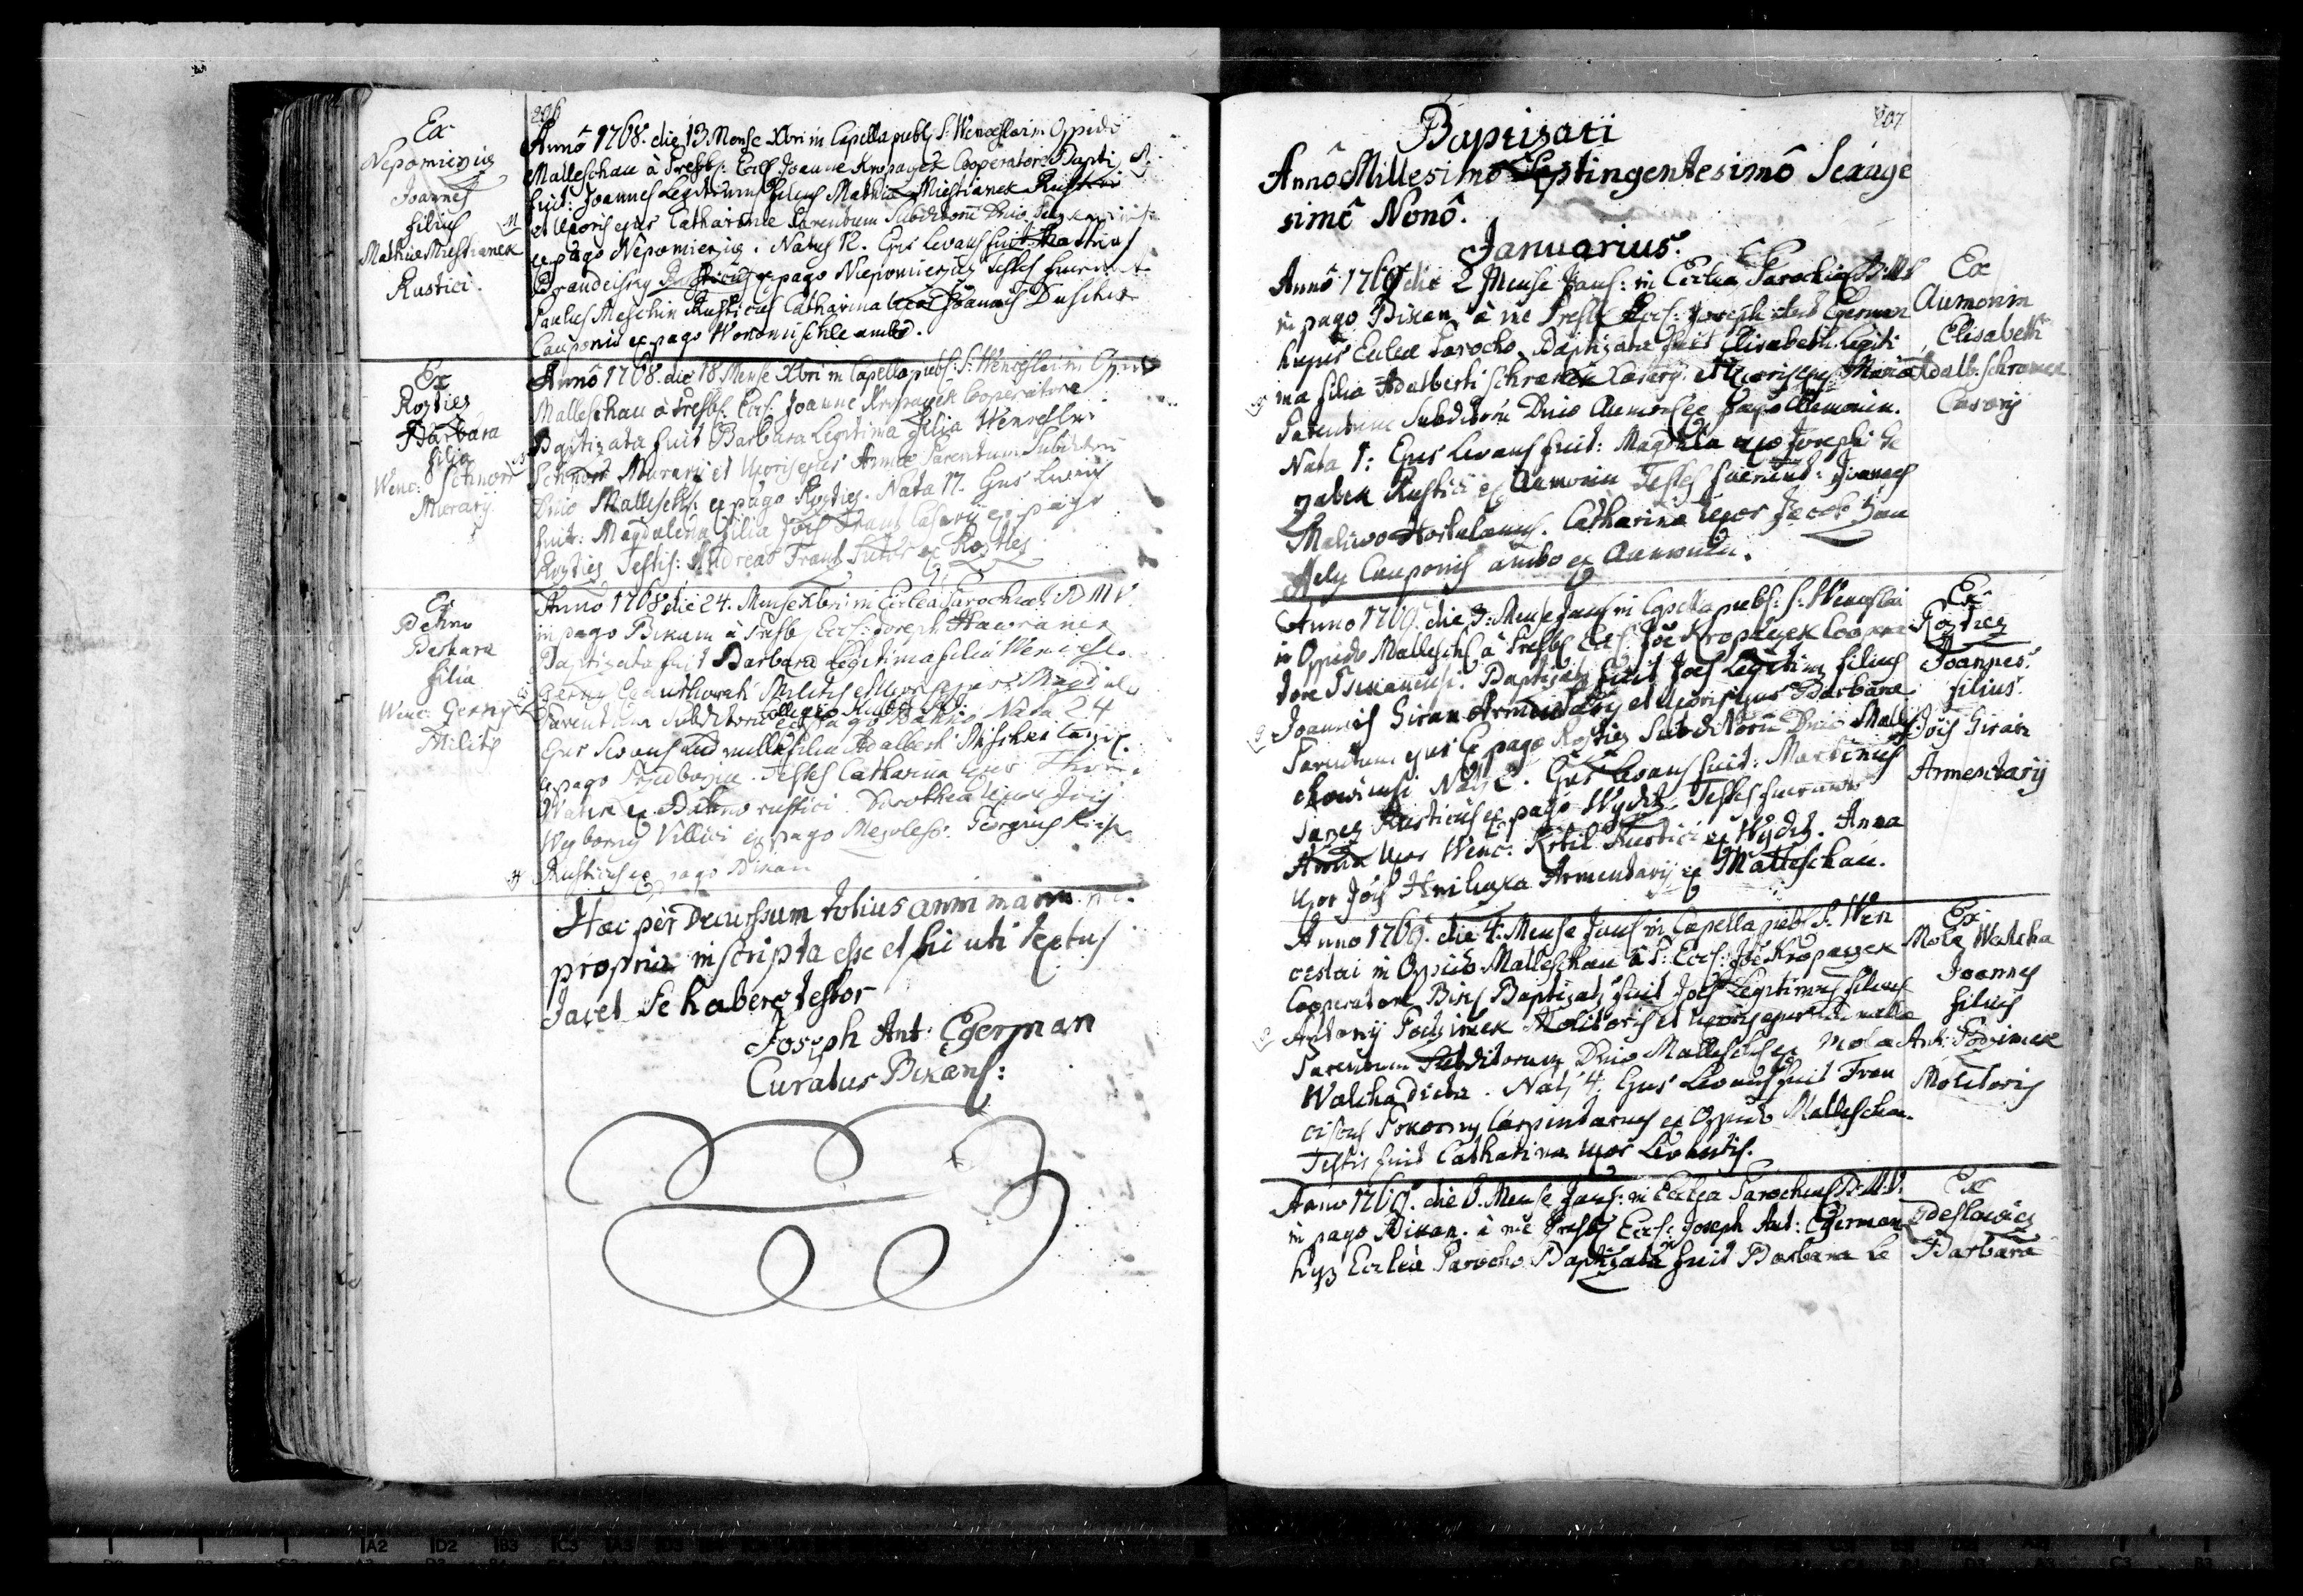 206
Ex
Nepomierzicz
Joannes
filius
Mathiæ Miestianek
Rustici.
Anno 1768. die 13 Mense Xbri in Capella publ: S: Wenceslai in Oppido
Malleschau à Presb: Eccl: Joanne Kropaczek Cooperatore Bapti
fuit: Joannes Legitimus filius Mathiæ Miestianek Rustici
et Uxoris ejus Catharinæ Parentum Subditorū Dnio
ex pago Nepomierzicz. Natus 12. Ejus Levans fuit: Mathias
Brandeisky Rusticus ex pago Niepomierzicz Testes fuerunt
Paulus Meschin Rusticus Catharina Uxor Joannis Duschek
Cauponis ex pago Wonomischle ambo.
Ex
Rozties
Barbara
filia
Wenc: Schnorr
Murarij
Anno 1768. die 18 Mense Xbri in Capella publ: S: Wenceslai in Oppido
Malleschau à Presb: Eccl: Joanne Kropaczek Cooperatore
Baptizata fuit Barbara Legitima filia Wenceslai
Schnorr Murarij et Uxoris ejus Annæ Parentum Subditorū
Dnio Mallesch: ex pago Rozties. Nata 17. Ejus Levans
fuit: Magdalena filia Jois Frantz Casarij ex pago
Rozties Testis: Andreas Frantz ex Rozties
Ex
Bahno
Barbara
filia
Wenc: Gerny
Militis
Anno 1768 die 24. Mense Xbri in Ecclea Parochiæ: B M V.
in pago Bikan à Presb: Eccl: Joseph Hawranek
Baptizata fuit Barbara Legitima filia Wencesl.
Gerny Militis et Uxoris ejus Magdale
Parentum Subditorū Collegio ex pago Bahno Nata 24
Ejus Levans Ludmilla filia Adalberti
ex pago Testes Catharina Uxor
ex Bahno rustici. Dorothea Uxor Jois
Wyborny Villici ex pago Georgius
Rusticus ex pago Bikan
Hæc per Decursum totius anni manu
propria inscripta esse et sic uti textus
Jacet Se habere testor
Joseph Ant: Egerman
Curatus Bikans:
207
Baptizati
Annô Millesimô Septingentesimô Sexage
simô Nonô.
Januarius.
Anno 1769 die 2 Mense Janr: in Ecclea Parochiæ B: M V
in pago Bikan à me Presb: Eccl: Joseph Ant Egerman
hujus Ecclæ Parocho Baptizata fuit Elisabeth Legiti
ma filia Adalberti Schramek Casarij et Uxoris ejus Mariæ
Parentum Subditorū Dnio Aumon: ex pago Aumonin.
Nata 1: Ejus Levans fuit: Magdalena uxor Josephi Ge
zabek Rustici ex Aumonin Testes fuerunt: Joannes
Maliwo Hortulanus. Catharina Uxor Jacobi
Cauponis ambo ex Aumonin.
Ex
Aumonin
Elisabeth
Adalb: Schramek
Casarij
Anno 1769. die 3: Mense Janr: in Capella publ: S: Wenceslai
in Oppido Mallesch: à Presb: Eccl: Joe Kropaczek Coopera
tore Bikanensi. Baptizatus fuit Joes Legitimus filius
Joannis Giran Armentarij et Uxoris ejus Barbaræ
Parentum ejus ex pago Rozties Subditorū Dnio Malle
chowiensi Natus 2. Ejus Levans fuit: Martinus
Janez Rusticus ex pago Wyditz. Testes fuerunt
Anna Uxor Wenc: Krbil Rustici ex Wyditz. Anna
Uxor Jois Armentarij ex Malleschau.
Ex
Rozties
Joannes
filius
Jois Giran
Armentarij
Anno 1769. die 4: Mense Janr: in Capella publ: S: Wen
ceslai in Oppido Malleschau à P: Eccl: Joe Kropaczek
Cooperatore Bikns Baptizatus fuit Joes Legitimus filius
Antonij Podzimek Molitoris et Uxoris ejus
Parentum Subditorum Dnio Mallesch: ex Mola
Walcha Dicta. Natus 4. Ejus Levans fuit Fran
ciscus Pokorny Carpentarius ex Oppido Malleschau.
Testis fuit Catharina Uxor Levantis.
Ex
Mola Walcha
Joannes
filius
Ant: Podzimek
Molitoris
Anno 1769. die 6. Mense Janr: in Ecclea Parochiæ B: M: V.
in pago Bikan. à me Presb: Eccl: Joseph Ant: Egerman
hujus Ecclæ Parocho Baptizata fuit Barbara Le
Ex
Barbara